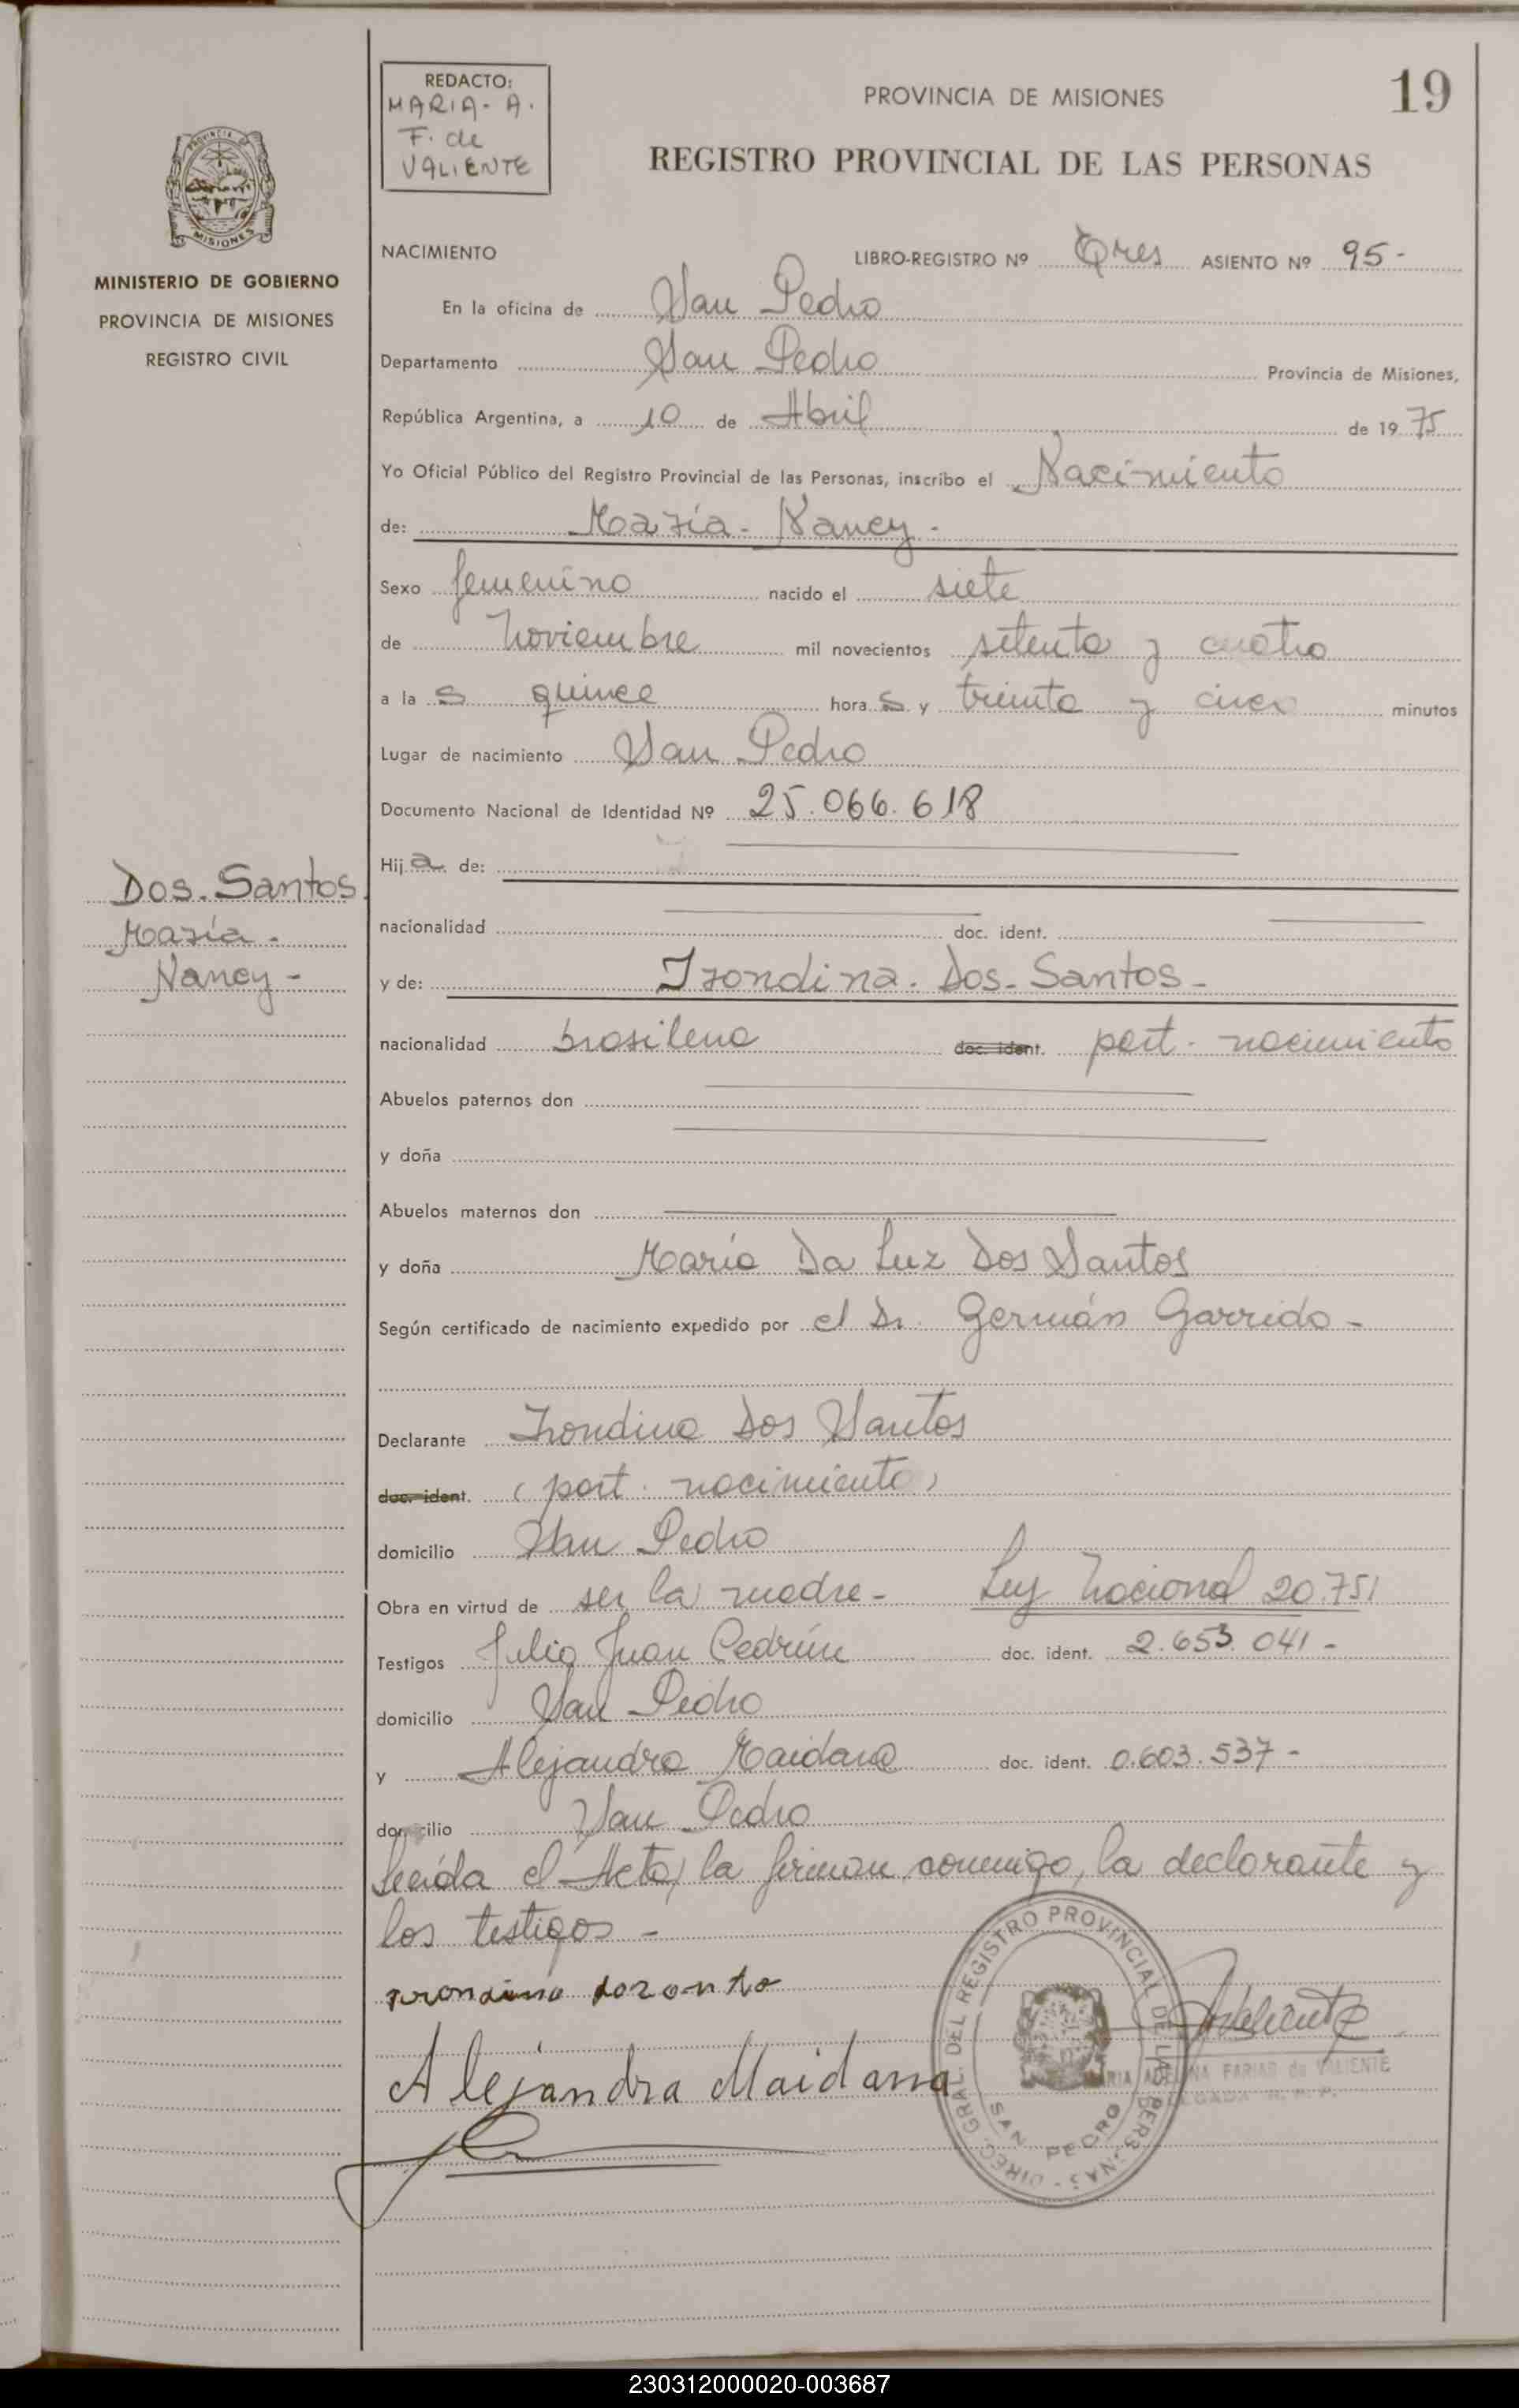 REDACTO:
MARIA - A.
F. de
VALIENTE
PROVINCIA DE MISIONES
19
REGISTRO PROVINCIAL DE LAS PERSONAS
MISIONES
MINISTERIO DE GOBIERNO
PROVINCIA DE MISIONES
REGISTRO CIVIL
NACIMIENTO LIBRO-REGISTRO Nº Tres ASIENTO Nº 95 -
En la oficina de San Pedro
Departamento San Pedro Provincia de Misiones,
República Argentina, a 10 de Abril de 1975
Yo Oficial Público del Registro Provincial de las Personas, inscribo el Nacimiento
de: María - Nancy -
Sexo femenino nacido el siete
de Noviembre mil novecientos setenta y cuatro
a las quince horas y treinta y cinco minutos
Lugar de nacimiento San Pedro
Documento Nacional de Identidad Nº 25.066.618
Hija de:
Dos. Santos
María -
Nancy -
nacionalidad doc. ident.
y de: Irondina. Dos - Santos -
nacionalidad brasileña doc. ident. part. nacimiento
Abuelos paternos don
y doña
Abuelos maternos don
y doña María Da Luz Dos Santos
Según certificado de nacimiento expedido por el Dr. Germán Garrido -
Declarante Irondina Dos Santos
doc. ident. (part. nacimiento)
domicilio San Pedro
Obra en virtud de ser la madre - Ley Nacional 20.751
Testigos Julio Juan Cedrún doc. ident. 2.653.041 -
domicilio San Pedro
y Alejandra Maidana doc. ident. 0.603.537 -
domicilio San Pedro
Leída el Acta, la firman conmigo, la declarante y
los testigos -
Alejandra Maidana
DIREC. GRAL. DEL REGISTRO PROVINCIAL DE LAS PERSONAS -
SAN PEDRO
MARIA ADELINA FARIAS de VALIENTE
230312000020-003687